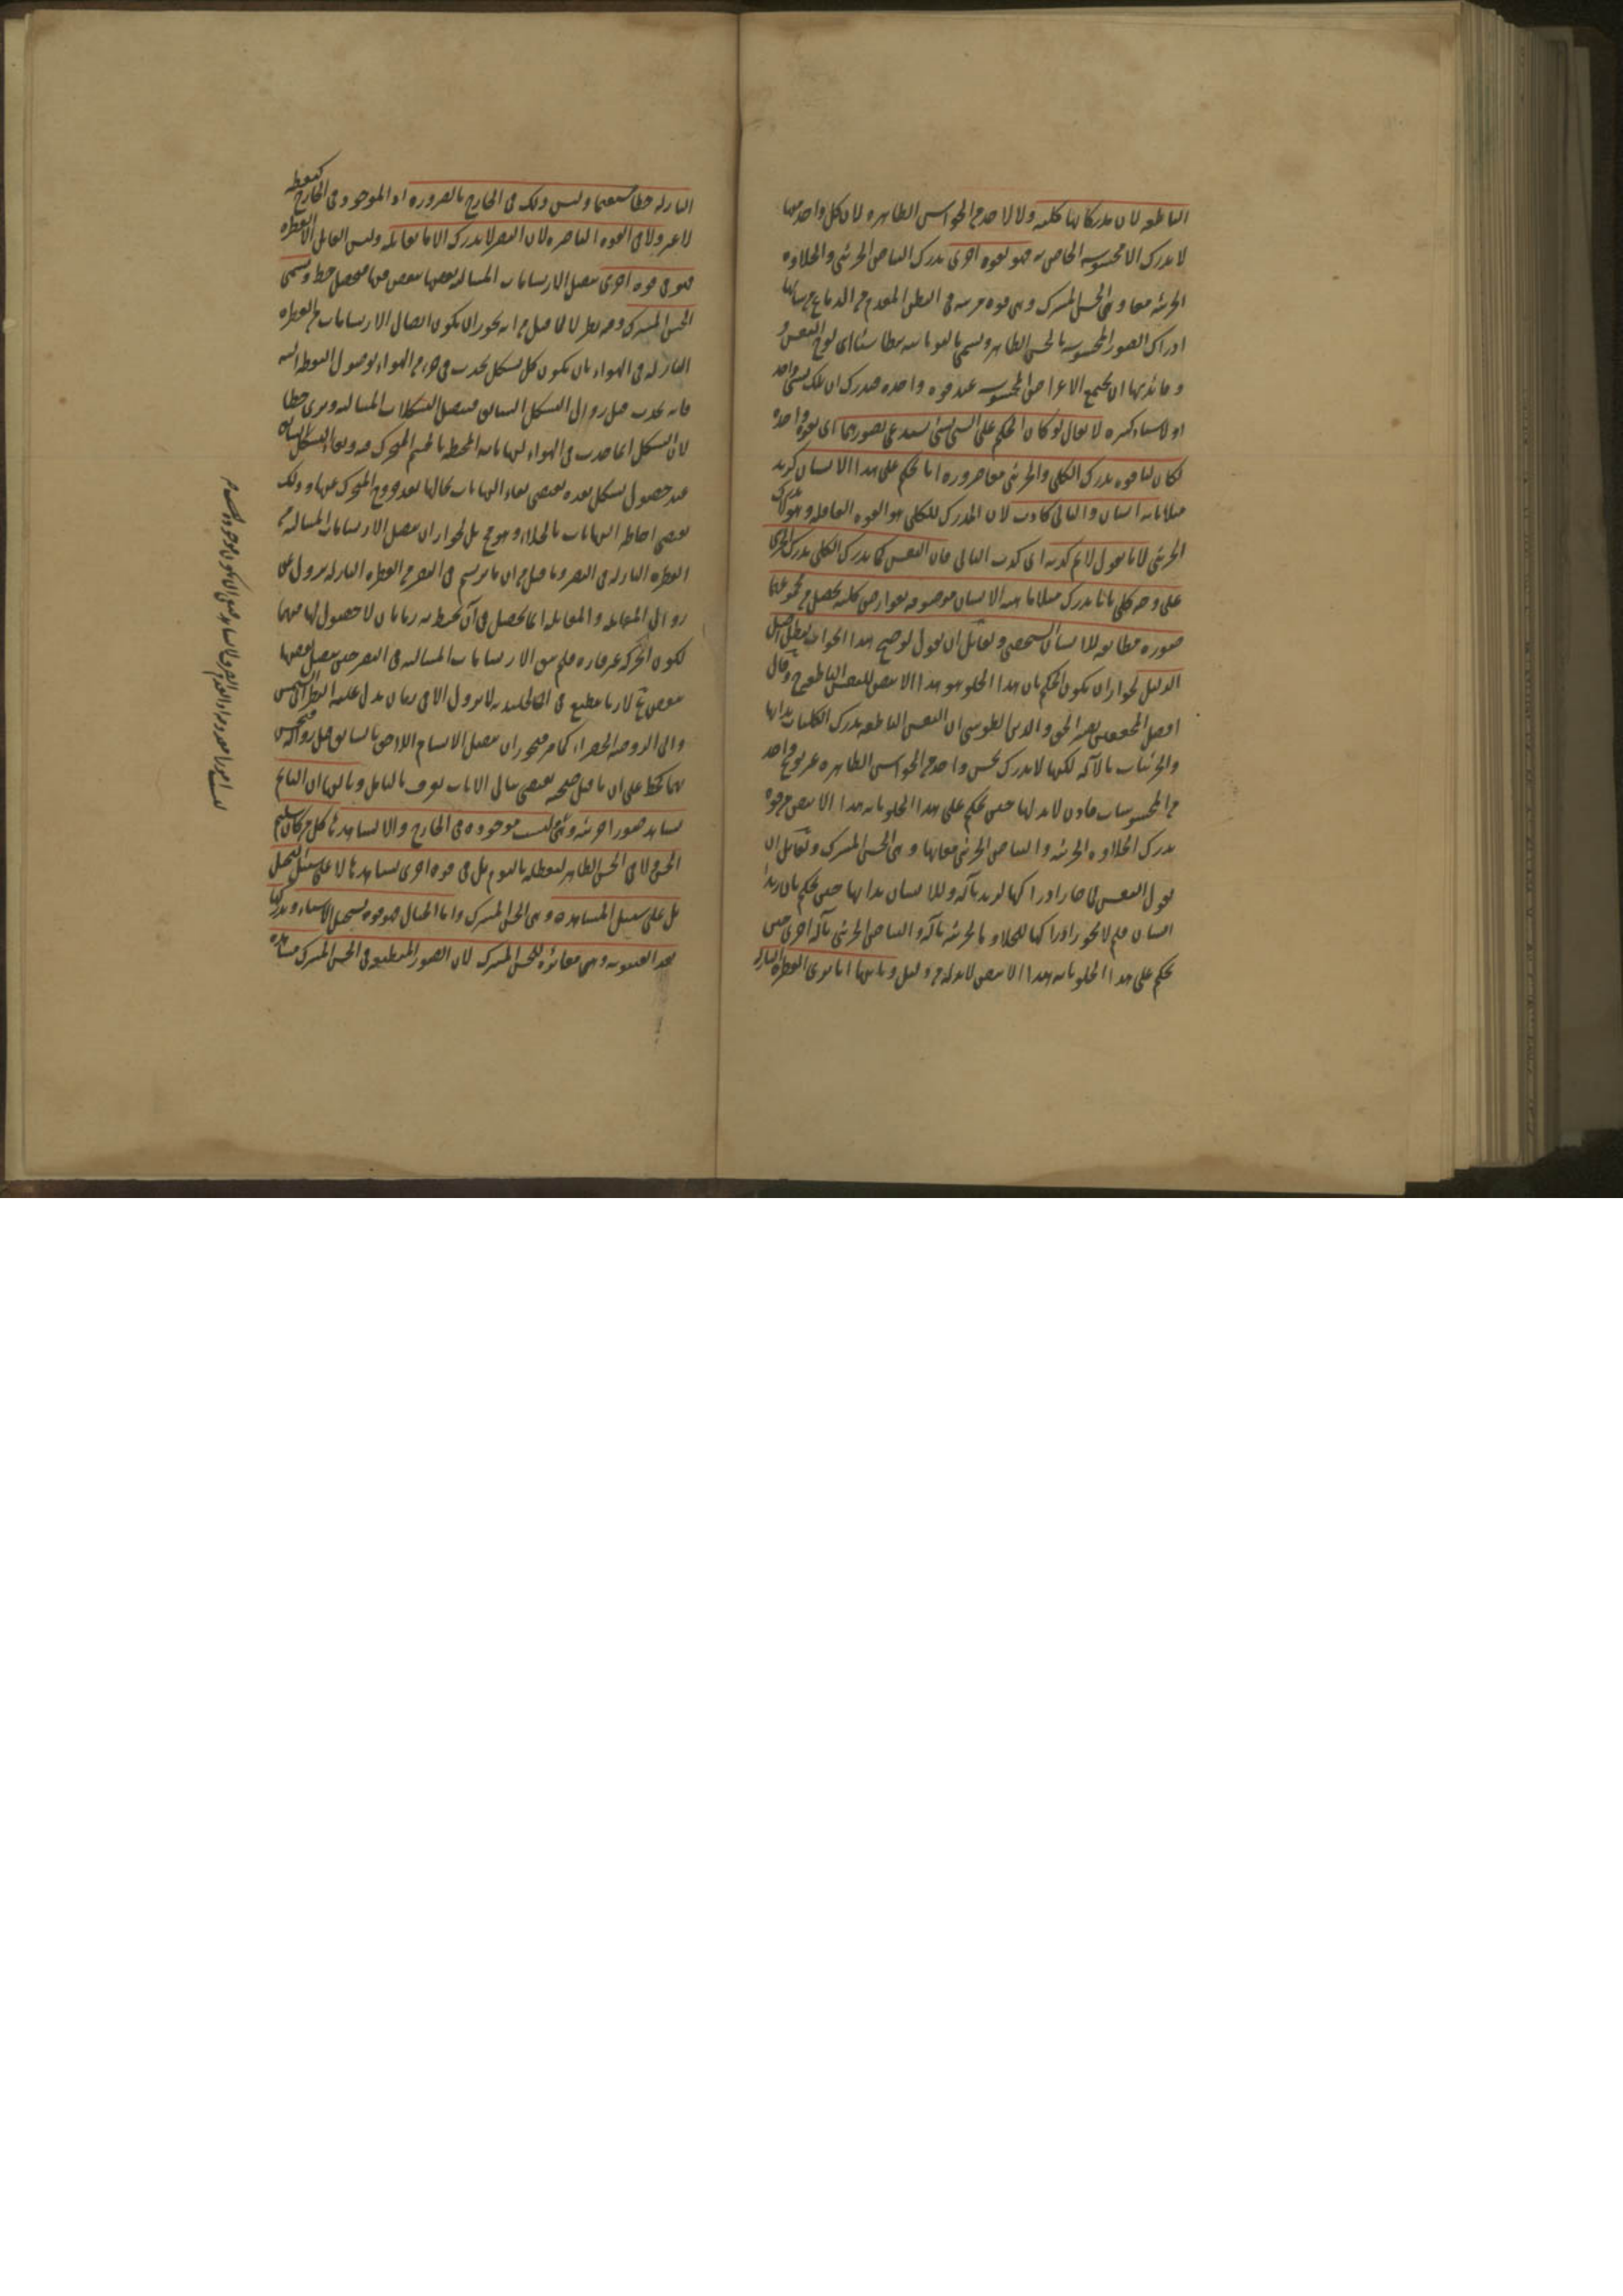 الناطقة لان مدركاتها كلية ولا لاحد من الحواس الظاهرة لان كل واحد منها
لا يدرك الا محسوسه الخاص به فهو لقوة اخرى تدرك البياض الجزئي والحلاوة
الجزئية معا وهي الحس المشترك وهي قوة مرتبة في البطن المقدم من الدماغ من شانها
ادراك الصور المحسوسة بالحس الظاهر وتسمى باليونانية بنطاسيا اى لوح النفس و
فائدتها ان يجتمع الاعراض المحسوسة عند قوة واحدة فيدرك ان تلك لشئ واحد
او لاشياء كثيرة لا يقال لو كان الحكم على الشئ بشئ يستدعى تصورهما اى بقوة واحدة
لكان لنا قوة تدرك الكلى والجزئى معا ضرورة انا نحكم على هذا الانسان كزيد
مثلا بانه انسان والتالى كاذب لان المدرك للكلى هو القوة العاقلة وهو لا يدرك
الجزئى لانا نقول لا نم كذبه اى كذب التالى فان النفس كما تدرك الكلى تدرك الجزئى
على وجه كلى بانا ندرك مثلا ماهية الانسان موصوفة بعوارض كلية يحصل من مجموعها
صورة مطابقة للانسان الشخصى ولقائل ان يقول لو صح هذا الجواب لبطل اصل
الدليل لجواز ان يكون الحكم بان هذا الحلو هو هذا الابيض للنفس الناطقة ح وقال
افضل المحققين نصير الحق والدين الطوسى ان النفس الناطقة تدرك الكليات بذاتها
والجزئيات بالآلة لكنها لا تدرك بحس واحد من الحواس الظاهرة غير نوع واحد
من المحسوسات فاذن لابد لها حتى تحكم على هذا الحلو بانه هذا الابيض من قوة
تدرك الحلاوة الجزئية والبياض الجزئى معا بها وهى الحس المشترك ولقائل ان
يقول النفس لما جاز ادراكها لزيد بآلة وللانسان بذاتها حتى تحكم بان زيدا
انسان فلم لا يجوز ادراكها للحلاوة الجزئية بآلة والبياض الجزئى بآلة اخرى حتى
تحكم على هذا الحلو بانه هذا الابيض لابد له من دليل وثانيها انا نرى القطرة النازلة
النازلة خطا مستقيما وليس ذلك فى الخارج بالضرورة اذ الموجود فى الخارج كنقطة
لا غير ولا فى القوة الباصرة لان البصر لا يدرك الا ما يقابله وليس المقابل الا القطرة
فهو فى قوة اخرى يتصل الارتسامات المتتالية بعضها ببعض فيها فيحصل خط وتسمى
الحس المشترك وفيه نظر لا لما قيل من انه يجوز ان يكون اتصال الارتسامات من القطرة
النازلة فى الهواء بان يكون كل تشكل يحدث فى جزء من الهواء لوصول القطرة اليه
فانه يحدث قبل زوال التشكل السابق فيتصل التشكلات المتتالية ويرى خطا
لان التشكل انما حدث فى الهواء لنهاياته المحيطة بالجسم المتحرك فيه وبقاء التشكل السابق
عند حصول تشكل بعده يقتضى بقاء النهايات بحالها بعد خروج المتحرك عنها وذلك
يقتضى احاطة النهايات بالخلاء وهو مح بل لجواز ان يتصل الارتسامات المتتالية من
القطرة النازلة فى البصر وما قيل من ان ما يرتسم فى البصر من القطرة النازلة يزول عن
زوال المقابلة والمقابلة انما تحصل فى آن يحيط به زمانان لا حصول لها فيهما
لكون الحركة غير قارة فلم يبق الارتسامات المتتالية فى البصر حتى يتصل بعضها
ببعض مم لان ما ينطبع فى الجليدية لا يزول الا فى زمان يدل عليه النظر الى الشمس
والى الروضة الخضراء كما مر فيجوز ان يتصل الارتسام اللاحق بالسابق قبل زواله فيحس
بهما كخط على ان ما قيل صحته يقتضى تتالى الآنات يعرف بالتأمل وثالثها ان النائم
يشاهد صورا جزئية وهى ليست موجودة فى الخارج والا لشاهدها كل من كان سليم
الحس ولا فى الحس الظاهر لتعطله بالنوم بل فى قوة اخرى تشاهدها لا على سبيل التخيل
بل على سبيل المشاهدة وهى الحس المشترك واما الخيال فهو قوة تستحفظ الاشياء وتدركها
بعد الغيبوبة وهى مغايرة للحس المشترك لان الصور المنطبعة فى الحس المشترك مشاهدة